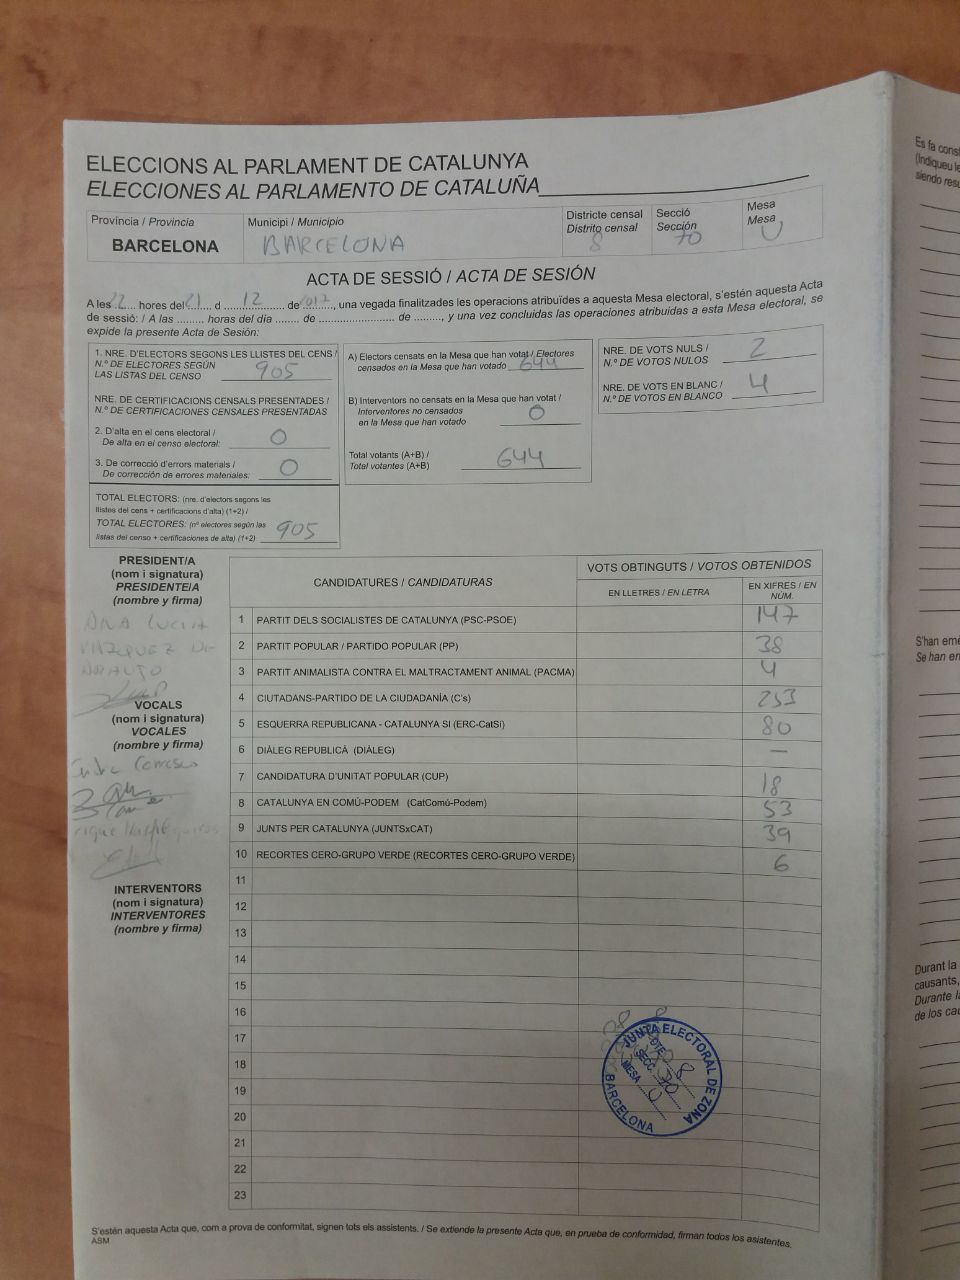 ELECCIONS AL PARLAMENT DE CATALUNYA
ELECCIONES AL PARLAMENTO DE CATALUÑA
Província / Provincia
BARCELONA
Municipi / Municipio
BARCELONA
Districte censal
Distrito censal
8
Secció
Sección
70
Mesa
Mesa
U
ACTA DE SESSIÓ / ACTA DE SESIÓN
A les 22 hores del 21 d 12 de 2017, una vegada finalitzades les operacions atribuïdes a aquesta Mesa electoral, s'estén aquesta Acta
de sessió: / A las ......... horas del día ....... de ......................... de ........., y una vez concluidas las operaciones atribuidas a esta Mesa electoral, se
expide la presente Acta de Sesión:
1. NRE. D'ELECTORS SEGONS LES LLISTES DEL CENS /
N.º DE ELECTORES SEGÚN
LAS LISTAS DEL CENSO 905
NRE. DE CERTIFICACIONS CENSALS PRESENTADES /
N.º DE CERTIFICACIONES CENSALES PRESENTADAS
2. D'alta en el cens electoral /
De alta en el censo electoral: 0
3. De correcció d'errors materials /
De corrección de errores materiales: 0
TOTAL ELECTORS: (nre. d'electors segons les
llistes del cens + certificacions d'alta) (1+2) /
TOTAL ELECTORES: (nº electores según las
listas del censo + certificaciones de alta) (1+2) 905
A) Electors censats en la Mesa que han votat / Electores
censados en la Mesa que han votado 644
B) Interventors no censats en la Mesa que han votat /
Interventores no censados
en la Mesa que han votado 0
Total votants (A+B) /
Total votantes (A+B) 644
NRE. DE VOTS NULS /
N.º DE VOTOS NULOS 2
NRE. DE VOTS EN BLANC /
N.º DE VOTOS EN BLANCO 4
PRESIDENT/A
(nom i signatura)
PRESIDENTE/A
(nombre y firma)
ANA LUCIA
VAZQUEZ DE
VOCALS
(nom i signatura)
VOCALES
(nombre y firma)
INTERVENTORS
(nom i signatura)
INTERVENTORES
(nombre y firma)
CANDIDATURES / CANDIDATURAS
VOTS OBTINGUTS / VOTOS OBTENIDOS
EN LLETRES / EN LETRA
EN XIFRES / EN
NÚM.
1 PARTIT DELS SOCIALISTES DE CATALUNYA (PSC-PSOE) 147
2 PARTIT POPULAR / PARTIDO POPULAR (PP) 38
3 PARTIT ANIMALISTA CONTRA EL MALTRACTAMENT ANIMAL (PACMA) 4
4 CIUTADANS-PARTIDO DE LA CIUDADANÍA (C's) 253
5 ESQUERRA REPUBLICANA - CATALUNYA SI (ERC-CatSí) 80
6 DIÀLEG REPUBLICÀ (DIÀLEG) —
7 CANDIDATURA D'UNITAT POPULAR (CUP) 18
8 CATALUNYA EN COMÚ-PODEM (CatComú-Podem) 53
9 JUNTS PER CATALUNYA (JUNTSxCAT) 39
10 RECORTES CERO-GRUPO VERDE (RECORTES CERO-GRUPO VERDE) 6
11
12
13
14
15
16
17
18
19
20
21
22
23
JUNTA ELECTORAL DE ZONA
BARCELONA
DTE. 8
SECC. 70
MESA U
S'estén aquesta Acta que, com a prova de conformitat, signen tots els assistents. / Se extiende la presente Acta que, en prueba de conformidad, firman todos los asistentes.
ASM
Es fa
(Indiqueu
siendo
S'han
Se han en
Durant la
causants,
Durante
de los